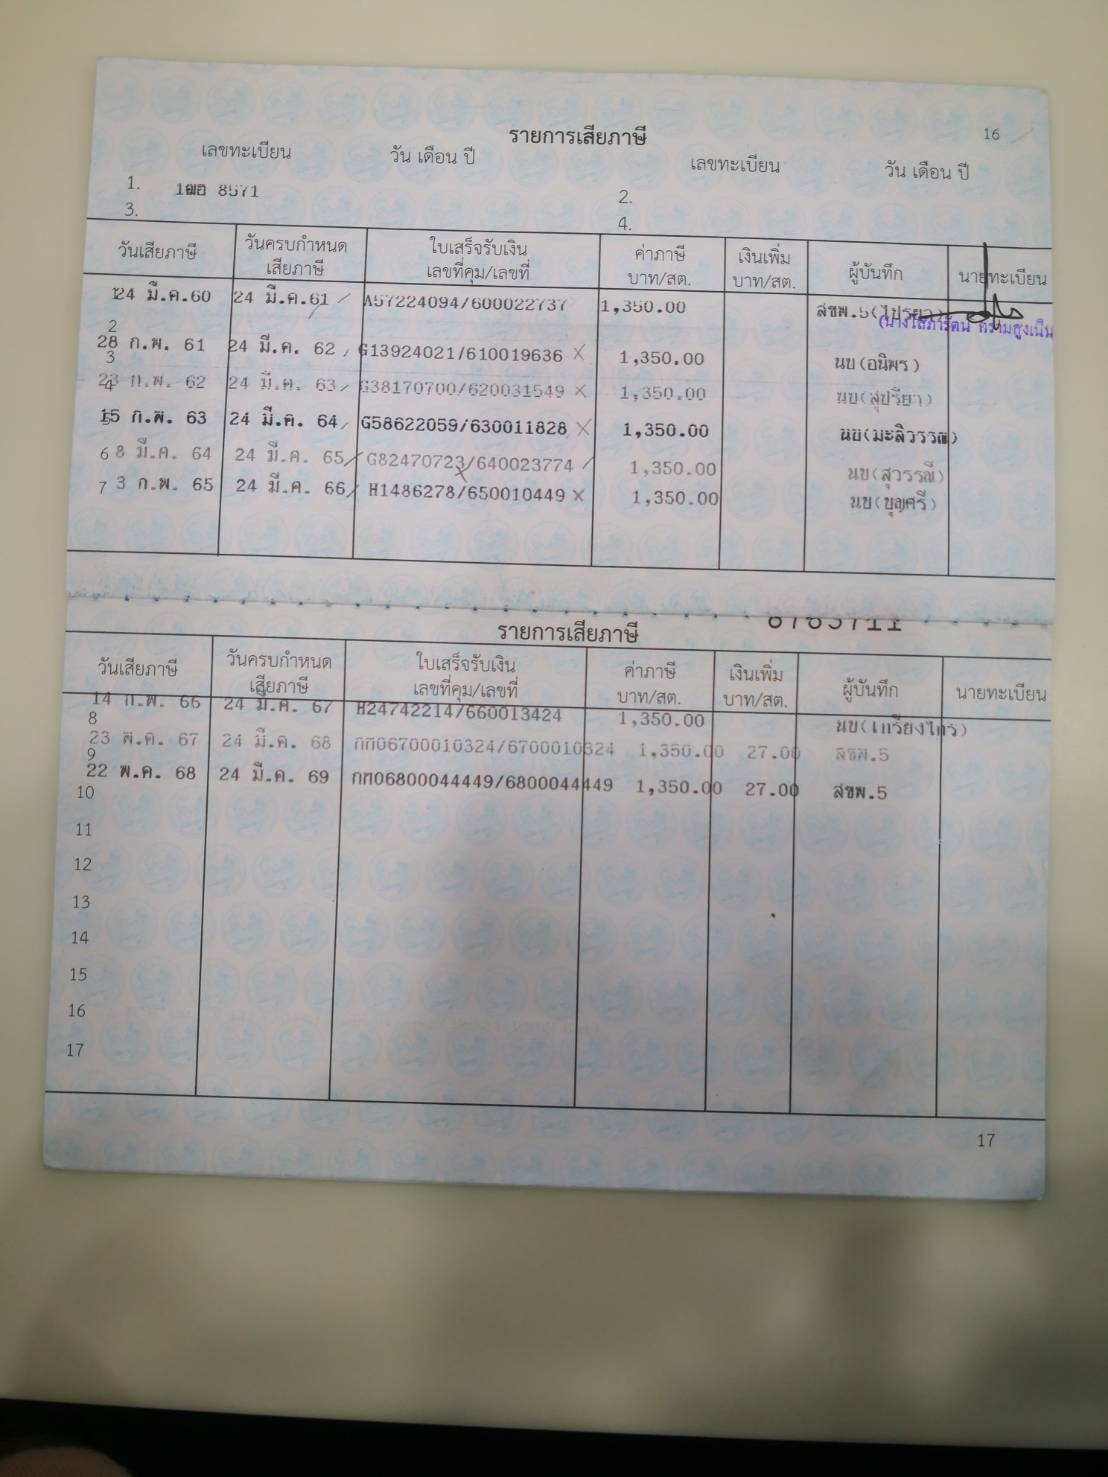 16
รายการเสียภาษี
เลขทะเบียน วัน เดือน ปี เลขทะเบียน วัน เดือน ปี
1. 1ฒฮ 8571 2.
3. 4.
วันเสียภาษี วันครบกำหนด เสียภาษี ใบเสร็จรับเงิน เลขที่คุม/เลขที่ ค่าภาษี บาท/สต. เงินเพิ่ม บาท/สต. ผู้บันทึก นายทะเบียน
1 24 มี.ค.60 24 มี.ค.61 / A57224094/600022737 1,350.00 สขพ.5
2 28 ก.พ. 61 24 มี.ค. 62 / G13924021/610019636 × 1,350.00 นบ(อนิพร)
3 23 ก.พ. 62 24 มี.ค. 63 / G38170700/620031549 × 1,350.00 นบ(สุปรียา)
4 15 ก.พ. 63 24 มี.ค. 64 / G58622059/630011828 × 1,350.00 นบ(มะลิวรรณ)
5
6 8 มี.ค. 64 24 มี.ค. 65 / G82470723/640023774 / 1,350.00 นบ(สุวรรณี)
7 3 ก.พ. 65 24 มี.ค. 66 / H1486278/650010449 × 1,350.00 นบ(บุญศรี)
รายการเสียภาษี
วันเสียภาษี วันครบกำหนด เสียภาษี ใบเสร็จรับเงิน เลขที่คุม/เลขที่ ค่าภาษี บาท/สต. เงินเพิ่ม บาท/สต. ผู้บันทึก นายทะเบียน
14 ก.พ. 66 24 มี.ค. 67 H24742214/660013424 1,350.00 นบ(เกรียงไกร)
8
23 พ.ค. 67 24 มี.ค. 68 กท06700010324/6700010324 1,350.00 27.00 สขพ.5
9
22 พ.ค. 68 24 มี.ค. 69 กท06800044449/6800044449 1,350.00 27.00 สขพ.5
10
11
12
13
14
15
16
17
17